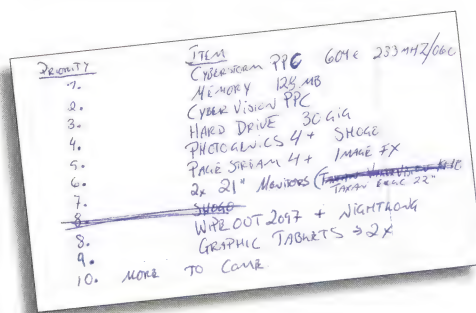 PRIORITY ITEM
1. CYBERSTORM PPC 604E 233MHZ/060
2. MEMORY 128MB
3. CYBER VISION PPC
4. HARD DRIVE 30 GIG
5. PHOTOGENICS 4 + SHOGO
6. PAGE STREAM 4 + IMAGE FX
7. 2x 21" MONITORS (
TAXAN ERGO 22"
8. SHOGO
8. WIPE OUT 2097 + NIGHTLONG
9. GRAPHIC TABLETS → 2X
10. MORE TO COME